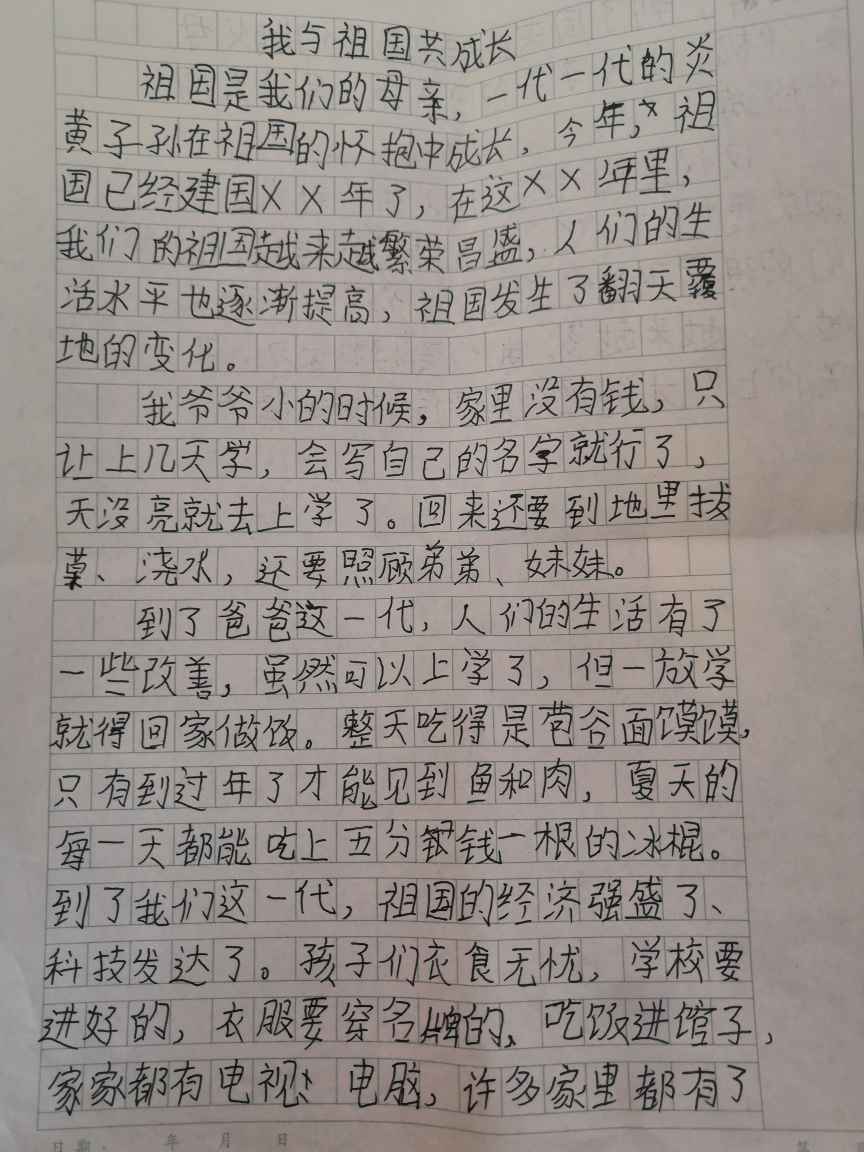 我与祖国共成长
祖国是我们的母亲，一代一代的炎
黄子孙在祖国的怀抱中成长，今年，祖
国已经建国XX年了，在这XX年里，
我们的祖国越来越繁荣昌盛，人们的生
活水平也逐渐提高，祖国发生了翻天覆
地的变化。
我爷爷小的时候，家里没有钱，只
让上几天学，会写自己的名字就行了，
天没亮就去上学了。回来还要到地里拔
草、浇水，还要照顾弟弟、妹妹。
到了爸爸这一代，人们的生活有了
一些改善，虽然可以上学了，但一放学
就得回家做饭。整天吃得是苞谷面馍馍，
只有到过年了才能见到鱼和肉，夏天的
每一天都能吃上五分钱一根的冰棍。
到了我们这一代，祖国的经济强盛了、
科技发达了。孩子们衣食无忧，学校要
进好的，衣服要穿名牌的，吃饭进馆子，
家家都有电视、电脑，许多家里都有了
日期： 年 月 日